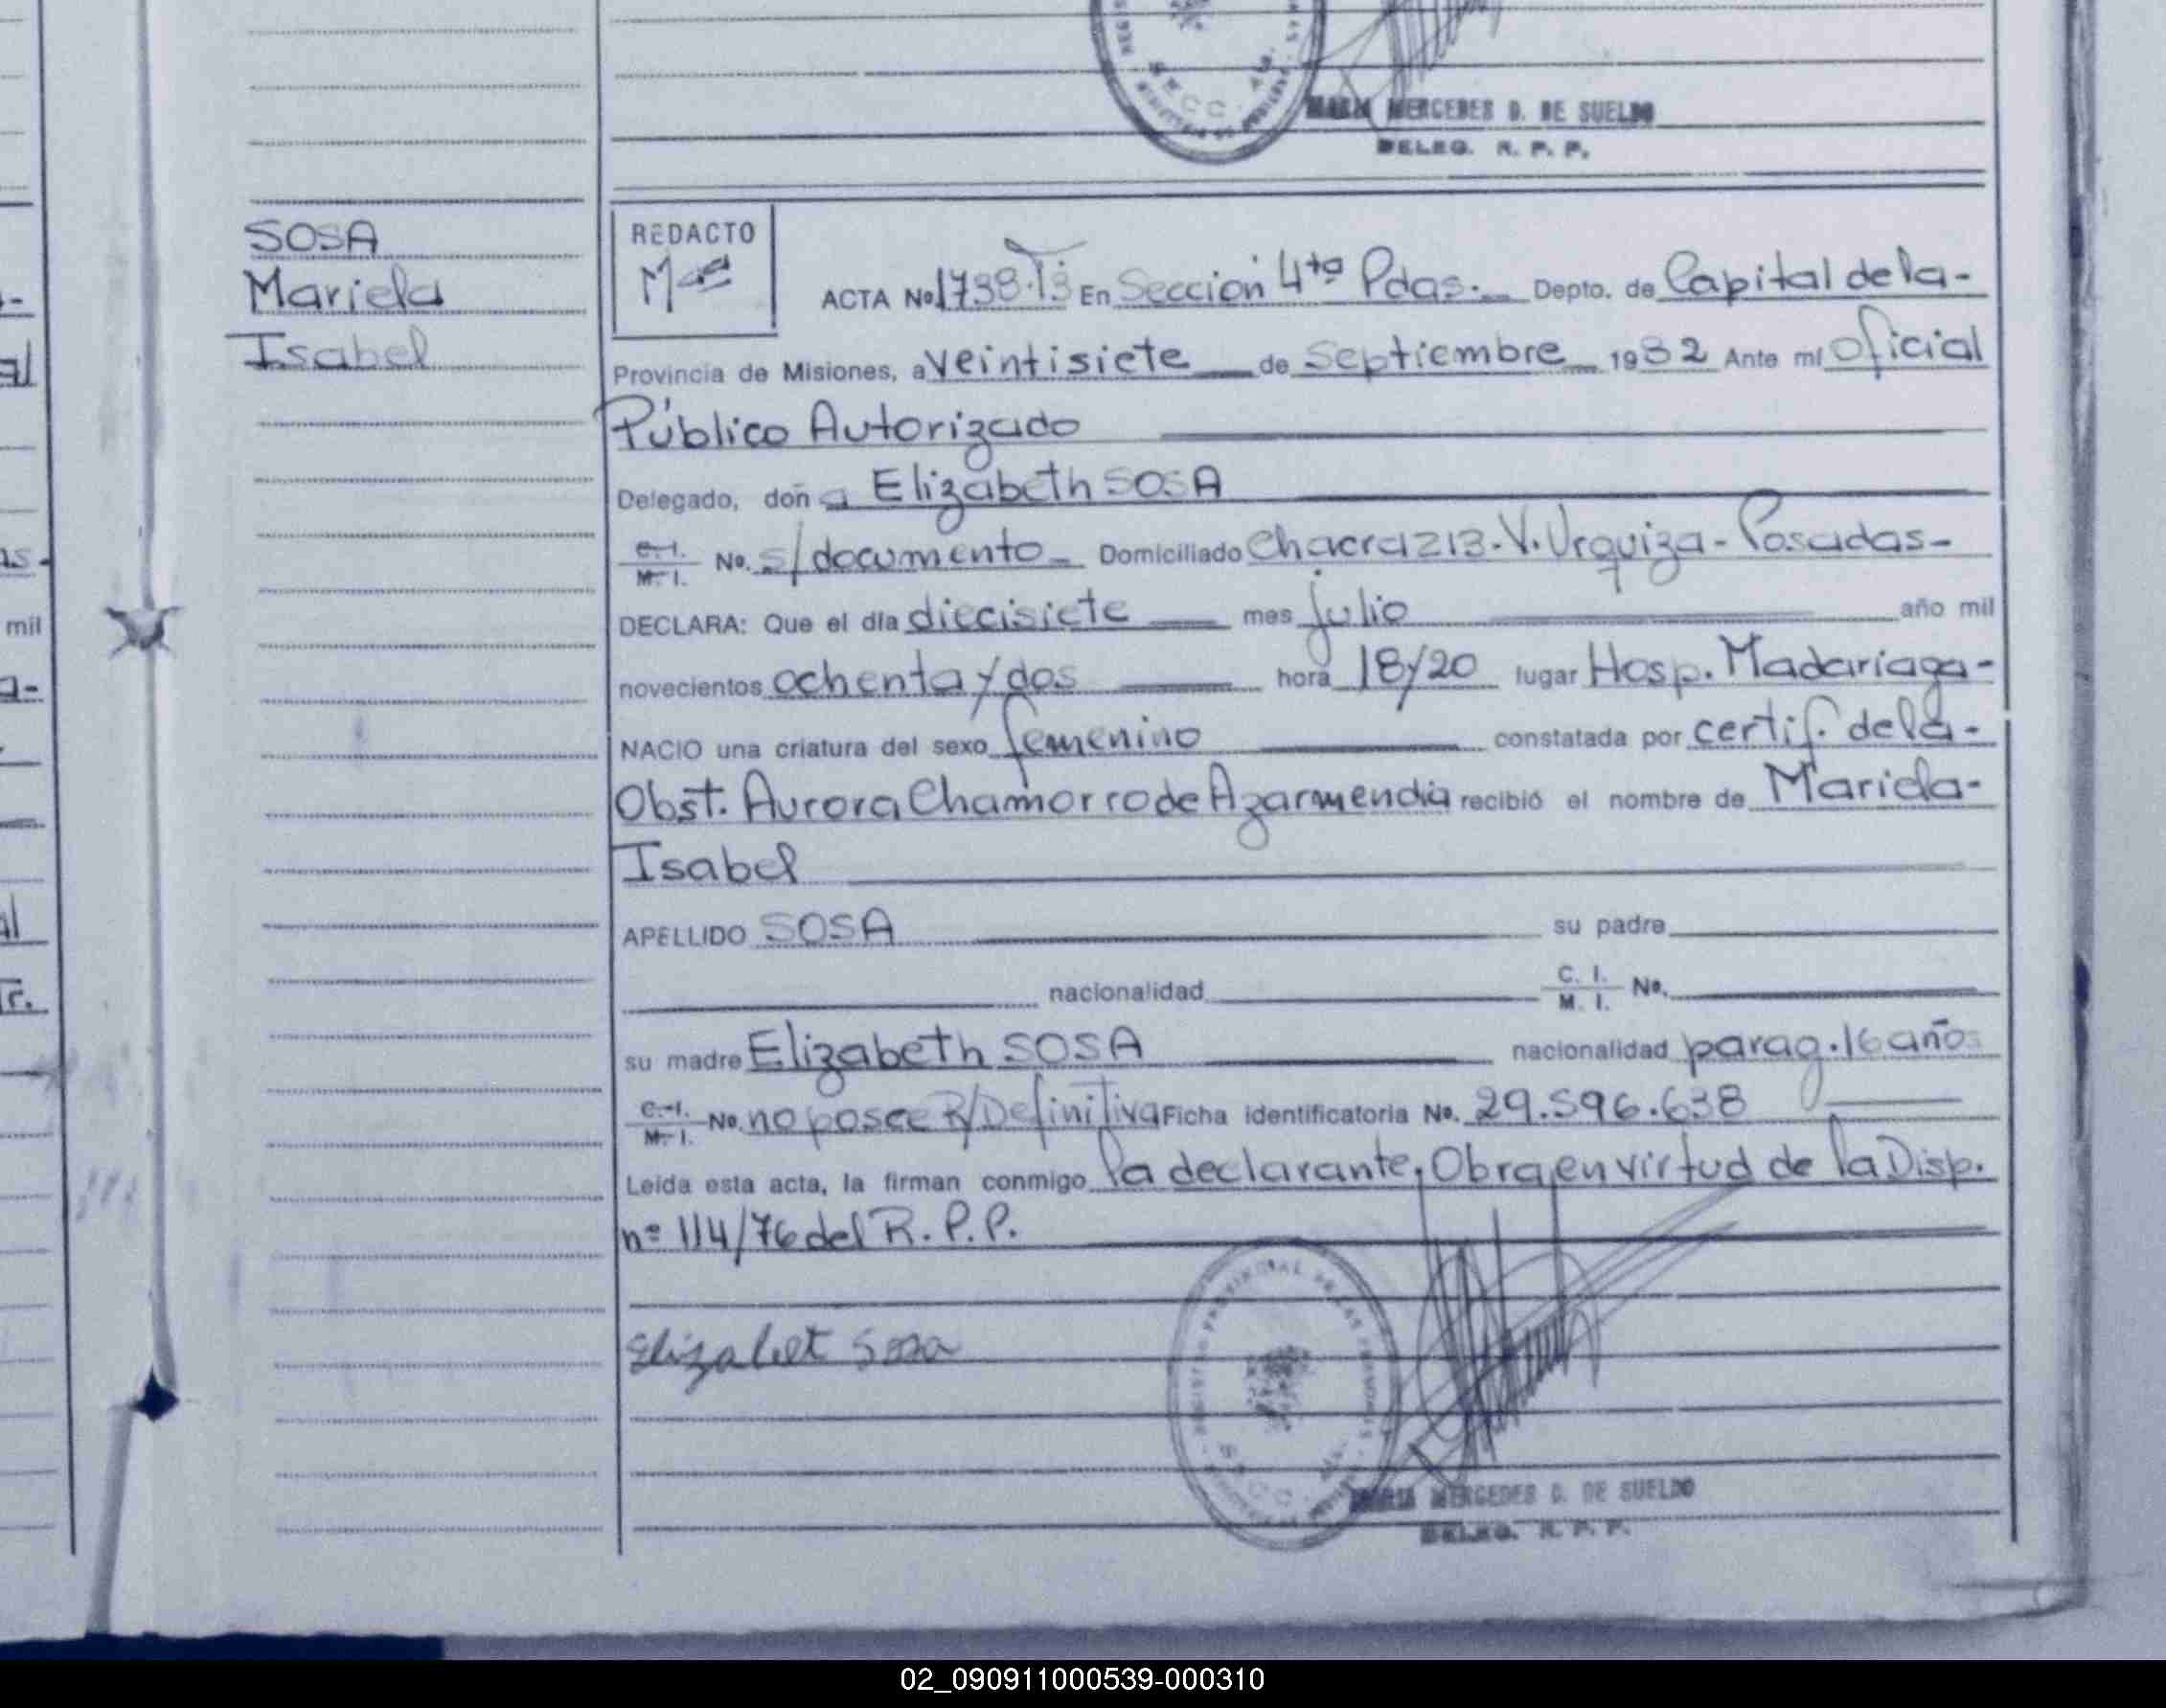 MARIA MERCEDES D. DE SUELDO
DELEG. R. P. P.
SOSA
Mariela
Isabel
REDACTO
ACTA No 1738 En Sección 4ta Pdas. Depto. de Capital de la-
Provincia de Misiones, a veintisiete de septiembre 1982 Ante mí Oficial
Público Autorizado
Delegado, doña Elizabeth SOSA
C. I. M. I. No. s/documento Domiciliado Chacra 213-V. Urquiza-Posadas-
DECLARA: Que el día diecisiete mes julio año mil
novecientos ochenta y dos hora 18/20 lugar Hosp. Madariaga-
NACIO una criatura del sexo femenino constatada por certif. de la-
Obst. Aurora Chamorro de Azarmendia recibió el nombre de Mariela-
Isabel
APELLIDO SOSA su padre
nacionalidad C. I. M. I. No.
su madre Elizabeth SOSA nacionalidad parag. 16 años
C. I. M. I. No. no posee R/Definitiva Ficha identificatoria No. 29.596.638
Leída esta acta, la firman conmigo la declarante, Obra en virtud de la Disp.
nº 114/76 del R. P. P.
Elizabet Sosa
MARIA MERCEDES D. DE SUELDO
DELEG. R. P. P.
02_090911000539-000310